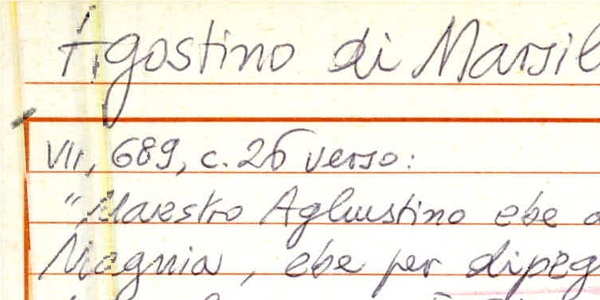 Agostino di Marsil
VII, 689, c. 26 verso:
"Maestro Aghustino ebe
Magnia, ebe per dipeg